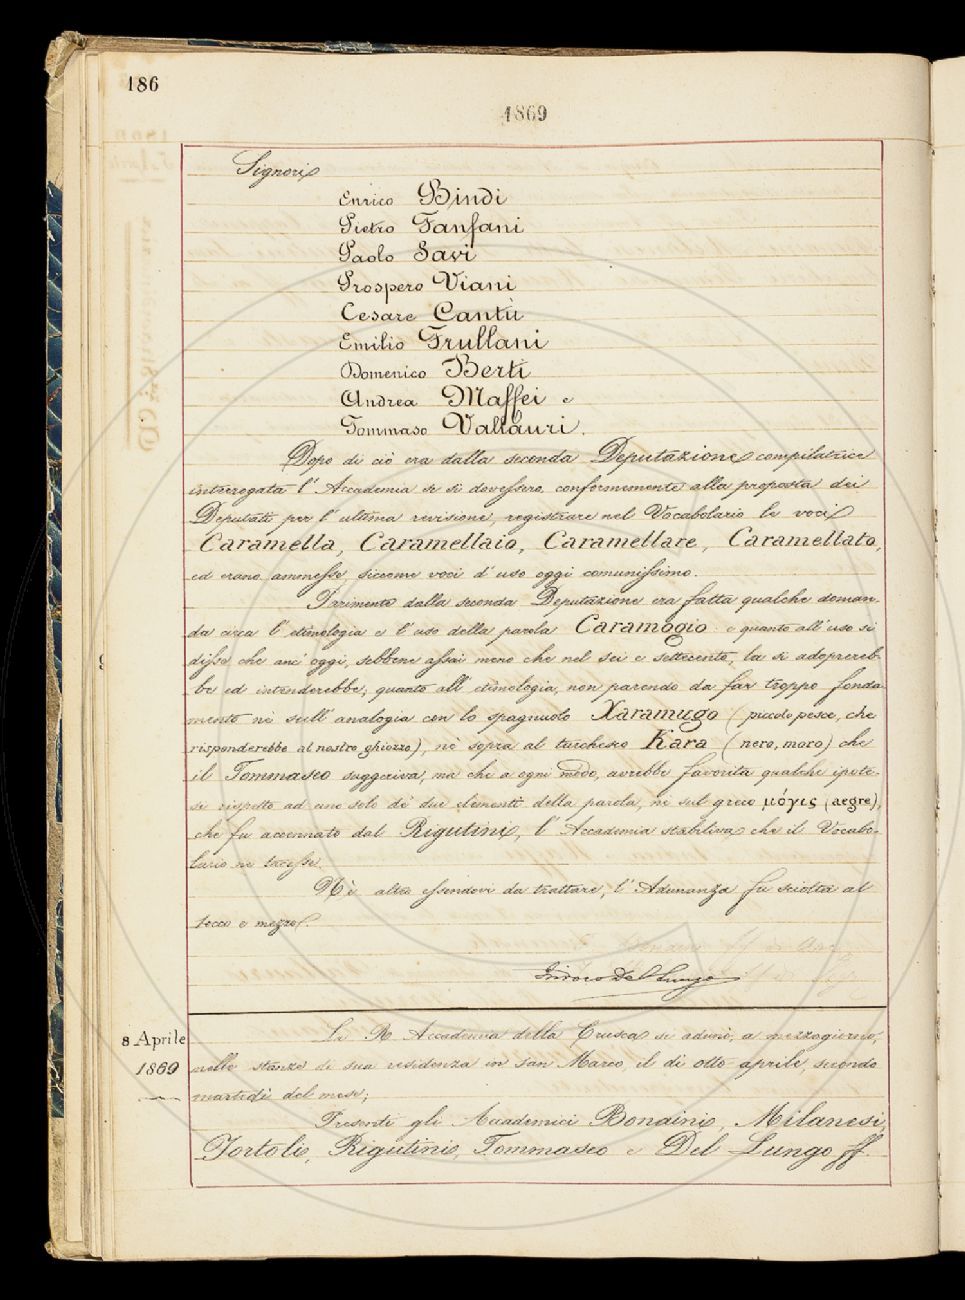 186
1869
Signori
Enrico Bindi
Pietro Fanfani
Paolo Savi
Prospero Viani
Cesare Cantù
Emilio Frullani
Domenico Berti
Andrea Maffei e
Tommaso Vallauri.
Dopo di ciò era dalla seconda Deputazione compilatrice
interrogata l'Accademia se si dovessero, conformemente alla proposta dei
Deputati per l'ultima revisione, registrare nel Vocabolario le voci
Caramella, Caramellaio, Caramellare, Caramellato,
ed erano ammesse, siccome voci d'uso oggi comunissimo.
Parimente dalla seconda Deputazione era fatta qualche doman-
da circa l'etimologia e l'uso della parola Caramogio: e quanto all'uso si
disse che anc'oggi, sebbene assai meno che nel sei e settecento, la si adoprereb-
be ed intenderebbe; quanto all'etimologia, non parendo da far troppo fonda-
mento nè sull'analogia con lo spagnuolo Xaramugo (piccolo pesce, che
risponderebbe al nostro ghiozzo), nè sopra al turchesco Kara (nero, moro) che
il Tommaseo suggeriva, ma che a ogni modo, avrebbe favorita qualche ipote-
si rispetto ad uno solo de' due elementi della parola, nè sul greco μόγις (aegre),
che fu accennato dal Rigutini, l'Accademia stabiliva che il Vocabo-
lario ne tacesse.
Nè altro essendovi da trattare, l'Adunanza fu sciolta al
tocco e mezzo.
Isidoro Del Lungo
8 Aprile
1869
La R. Accademia della Crusca si adunò, a mezzogiorno,
nelle stanze di sua residenza in San Marco, il dì otto aprile, secondo
martedì del mese;
Presenti gli Accademici Bondini, Milanesi,
Tortoli, Rigutini, Tommaseo e Del Lungo ff.